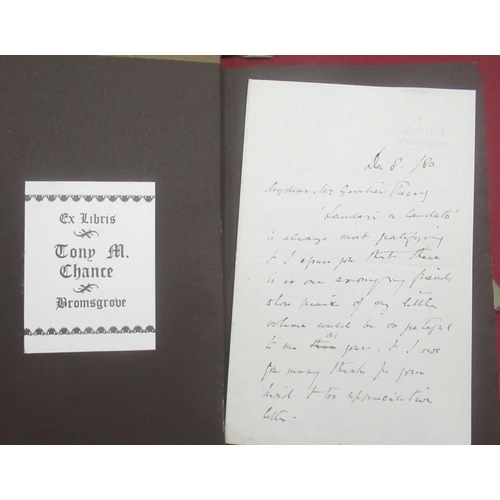 Ex Libris
Tony M.
Chance
Bromsgrove
Dec 8. /80
My dear Mr Gambier Parry
'Laudari a laudato'
is always most gratifying
& I assure you that there
is no one among my friends
whose praise of my little
volume could be so grateful
to me as yours. & I owe
you many thanks for your
kind & too appreciative
letter.